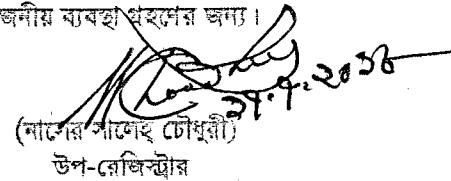 জনীয় ব্যবস্থা গ্রহণের জন্য।
২৭.৭.২০১৮
(নাসের সালেহ্ চৌধুরী)
উপ-রেজিস্ট্রার